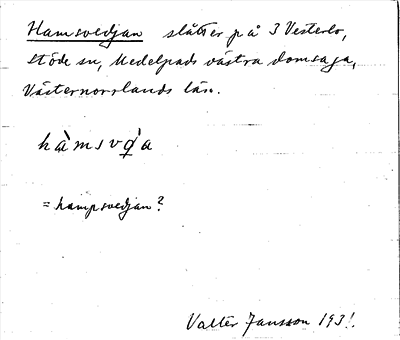 Hamsvedjan slåtter på 3 Vesterlo,
Stöde sn, Medelpads västra domsaga,
Västernorrlands län.
hàmsvǫ̀a
= hampsvedjan?
Valter Jansson 193!.